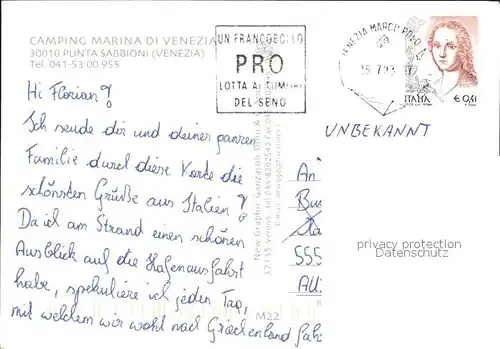 CAMPING MARINA DI VENEZIA
30010 PUNTA SABBIONI (VENEZIA)
Tel. 041-53 00 955
UN FRANCOBOLLO
PRO
LOTTA AI TUMORI
DEL SENO
VENEZIA MARCO POLO
ITALIA
€ 0,41
Hi Florian!
Ich sende dir und deiner ganzen
Familie durch diese Karte die
schönsten Grüße aus Italien!
Da ich am Strand einen schönen
Ausblick auf die Hafenausfahrt
habe, spekuliere ich jeden Tag,
mit welchem wir wohl nach Griechenland fah
New Graphic
37135 Verona
M22
UNBEKANNT
An
555
privacy protection
Datenschutz